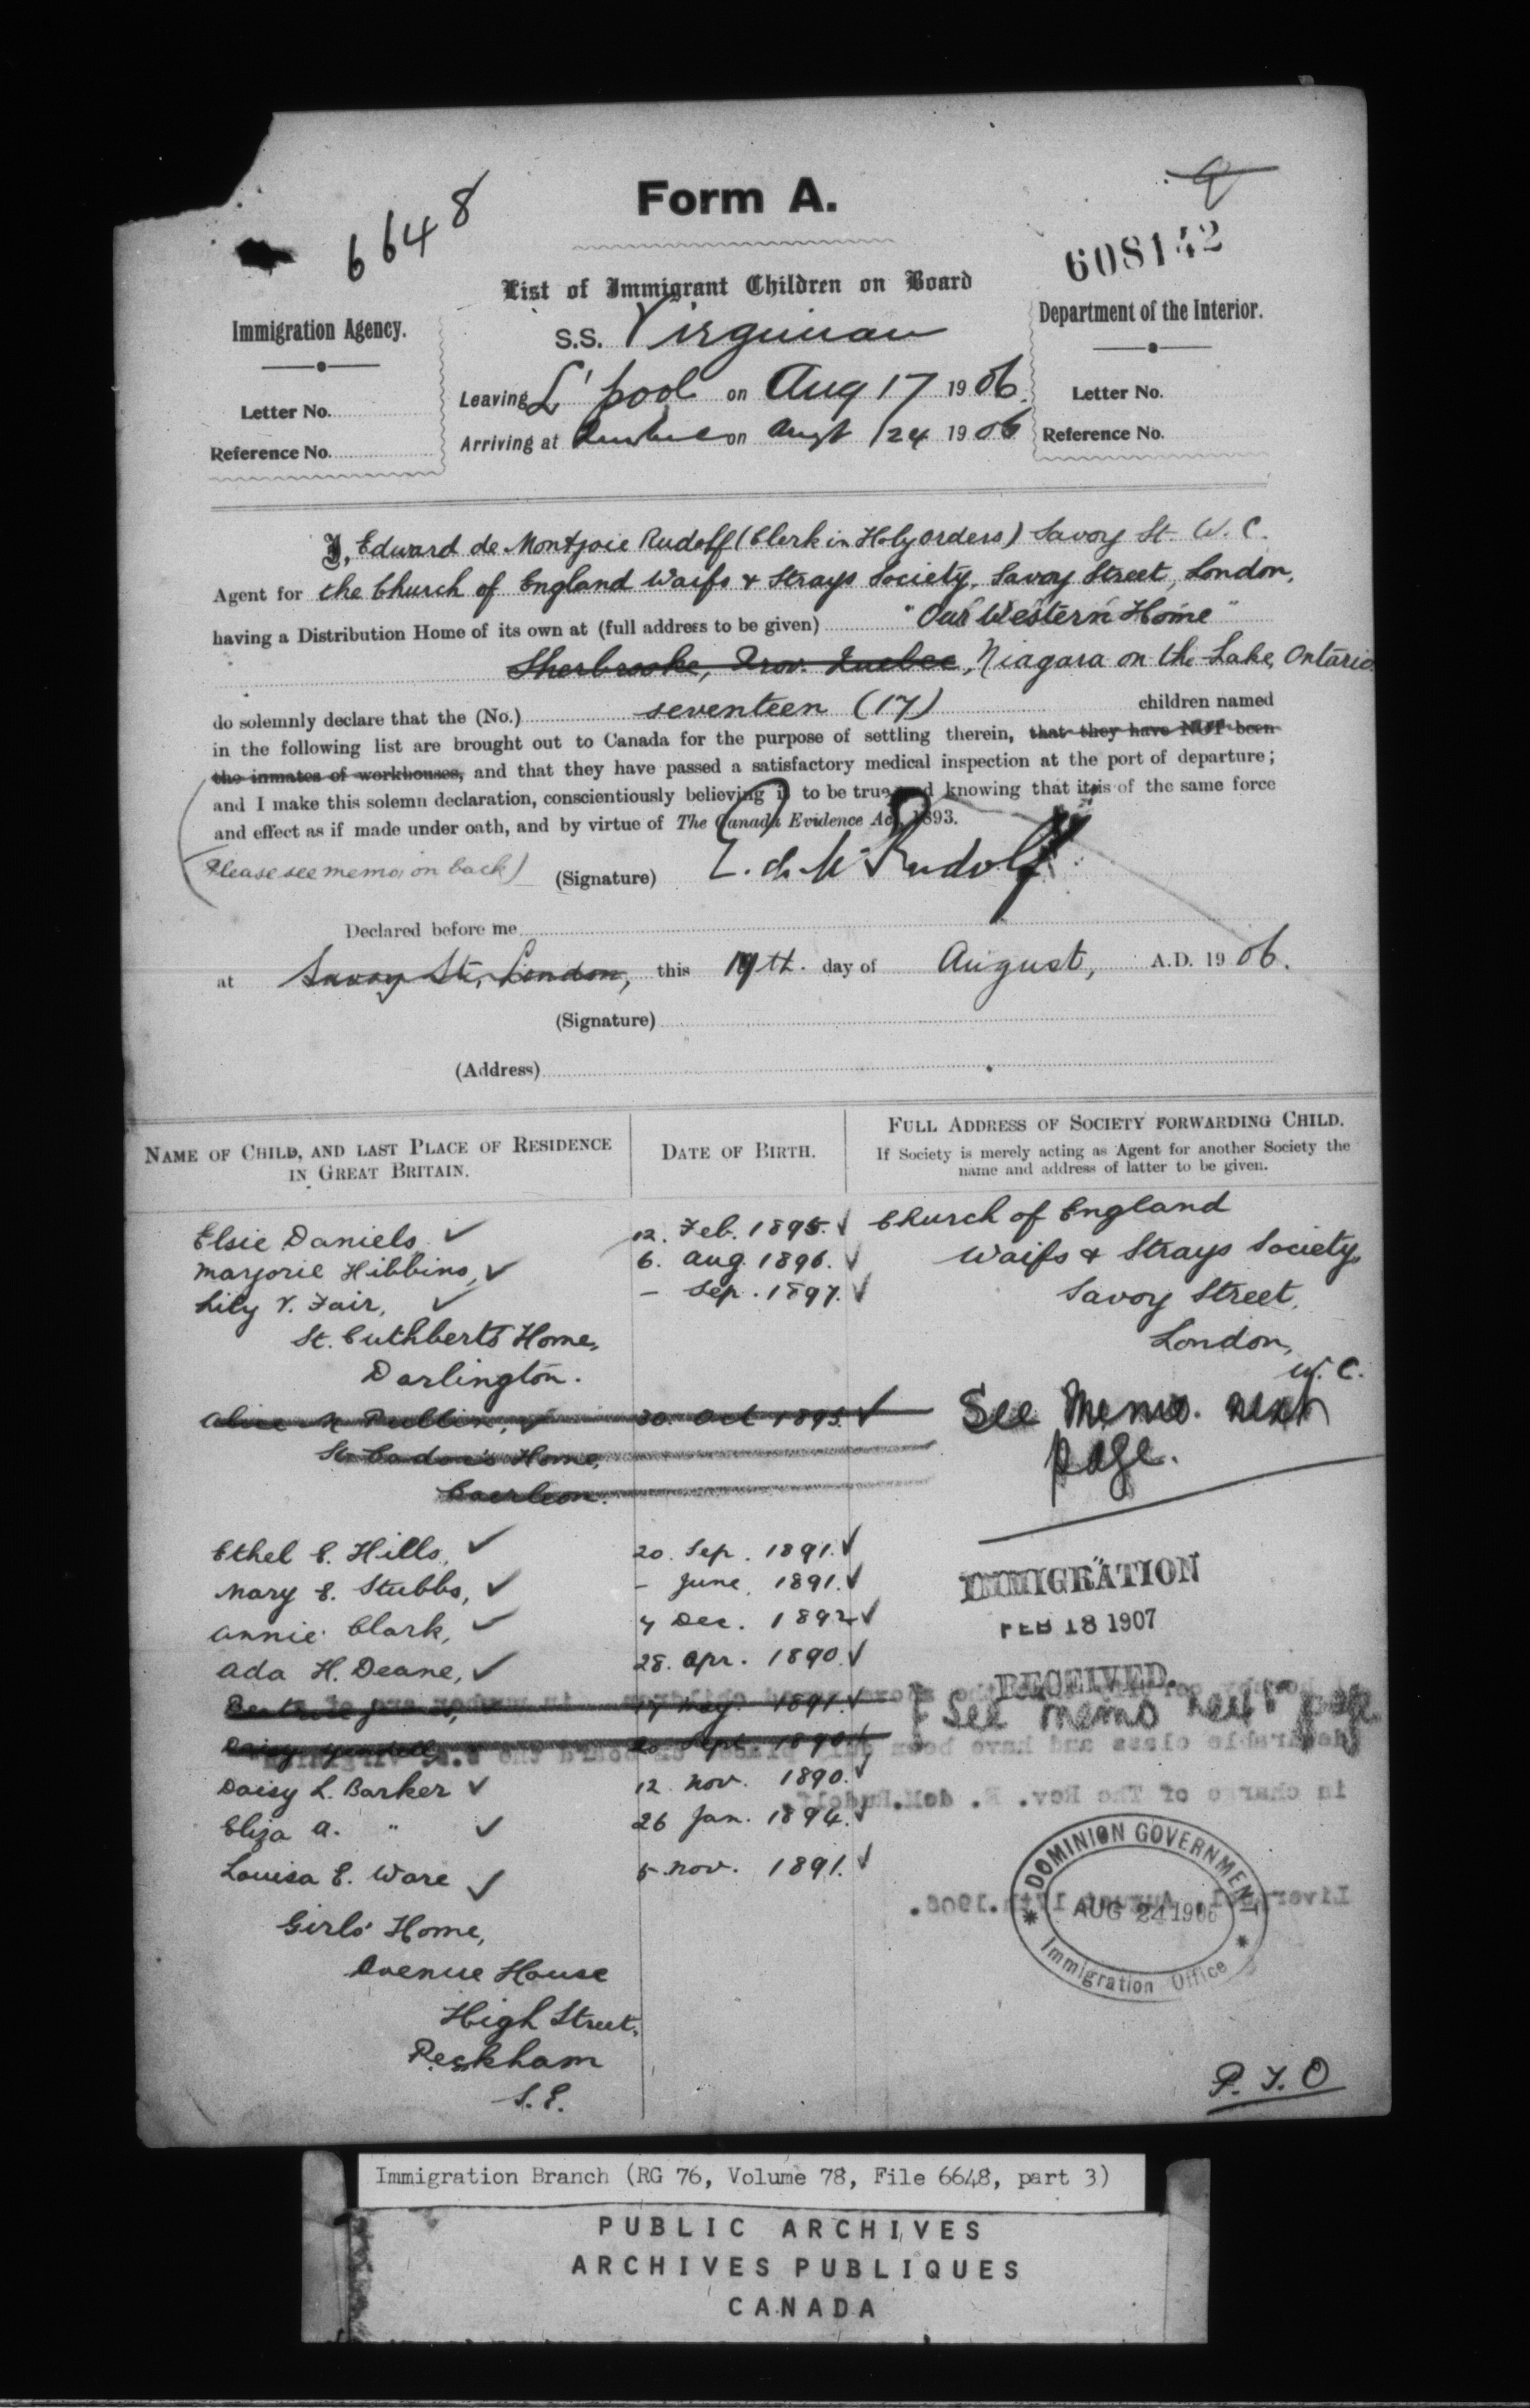 Form A.
6648
608142
List of Immigrant Children on Board
Immigration Agency.
S.S. Virginian
Department of the Interior.
Leaving L'pool on Aug 17 1906.
Letter No.
Letter No.
Arriving at Quebec on Augt 24 1906
Reference No.
Reference No.
I, Edward de Montjoie Rudolf (Clerk in Holy Orders) Savoy St. W.C.
Agent for the Church of England Waifs & Strays Society, Savoy Street, London,
having a Distribution Home of its own at (full address to be given) "Our Western Home"
Sherbrooke, Prov. Quebec, Niagara on the Lake, Ontario
do solemnly declare that the (No.) seventeen (17) children named
in the following list are brought out to Canada for the purpose of settling therein, that they have NOT been
the inmates of workhouses, and that they have passed a satisfactory medical inspection at the port of departure;
and I make this solemn declaration, conscientiously believing it to be true and knowing that it is of the same force
and effect as if made under oath, and by virtue of The Canada Evidence Act, 1893.
(Please see memo, on back)
(Signature) E. de M. Rudolf
Declared before me
at Savoy St, London, this 17th. day of August, A.D. 1906.
(Signature)
(Address)
NAME OF CHILD, AND LAST PLACE OF RESIDENCE IN GREAT BRITAIN.
DATE OF BIRTH.
FULL ADDRESS OF SOCIETY FORWARDING CHILD.
If Society is merely acting as Agent for another Society the name and address of latter to be given.
Elsie Daniels ✓ 12. Feb. 1895. ✓ Church of England
Marjorie Hibbins, ✓ 6. Aug. 1896. ✓ Waifs & Strays Society,
Lily V. Fair, ✓ – Sep. 1897. ✓ Savoy Street,
St. Cuthberts Home, London,
Darlington. W.C.
Alice M Pullin, ✓ 30. Oct 1895. ✓ See Memo. next
St Cadoc's Home, page.
Caerleon.
Ethel E. Hills, ✓ 20. Sep. 1891. ✓
Mary E. Stubbs, ✓ – June, 1891. ✓
IMMIGRATION
Annie Clark, ✓ 4 Dec. 1892 ✓
FEB 18 1907
Ada H. Deane, ✓ 28. Apr. 1890. ✓
RECEIVED.
17 May. 1891. ✓ See memo next page
Daisy 20 Sept 1890 ✓
Daisy L. Barker ✓ 12 Nov. 1890. ✓
in charge of The Rev. E. deM.Rudolf.
Eliza A. " ✓ 26 Jan. 1894. ✓
Louisa E. Ware ✓ 5 Nov. 1891. ✓
DOMINION GOVERNMENT
Liverpool, August 17th.1906.
AUG 24 1906
Immigration Office
Girls' Home,
Avenue House
High Street,
Peckham
S.E.
P.T.O
Immigration Branch (RG 76, Volume 78, File 6648, part 3)
PUBLIC ARCHIVES
ARCHIVES PUBLIQUES
CANADA